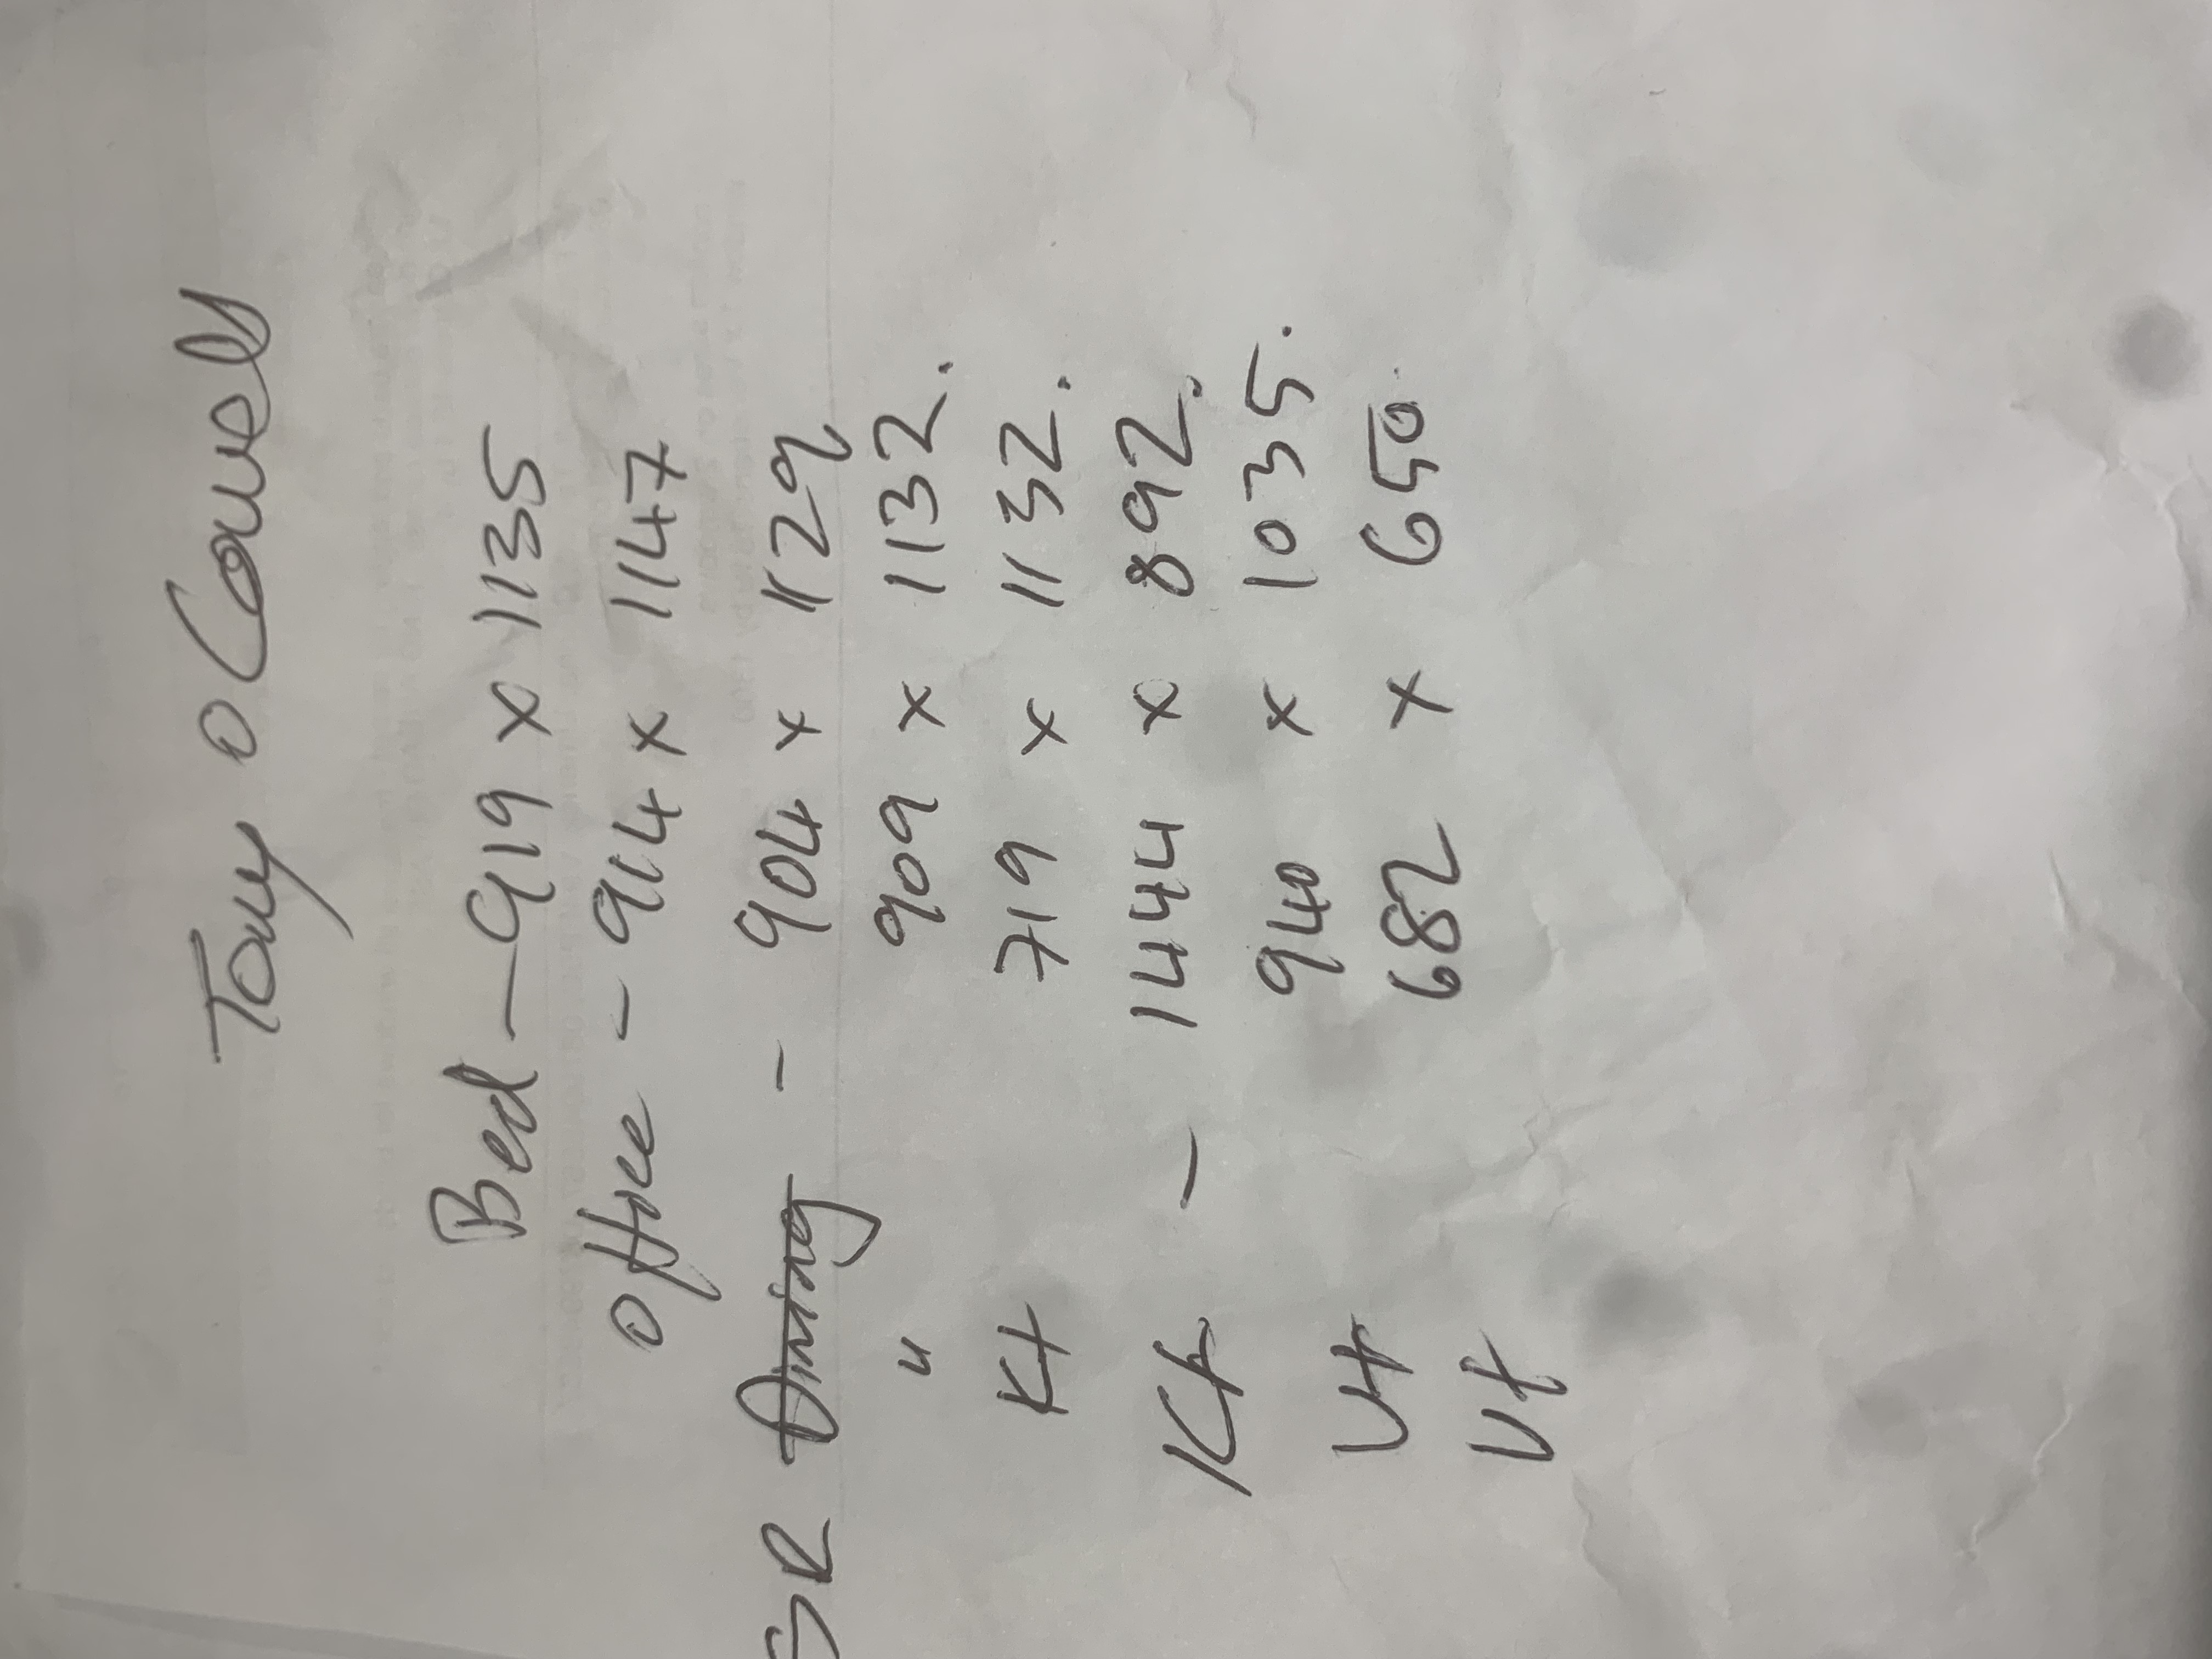 Tony O Connell
Bed - 919 x 1135
Office - 914 x 1147
BR Dining - 904 x 1129
" 909 x 1132.
Kt 719 x 1132.
Kt - 1444 x 892.
Ut 940 x 1035.
Ut 682 x 650.